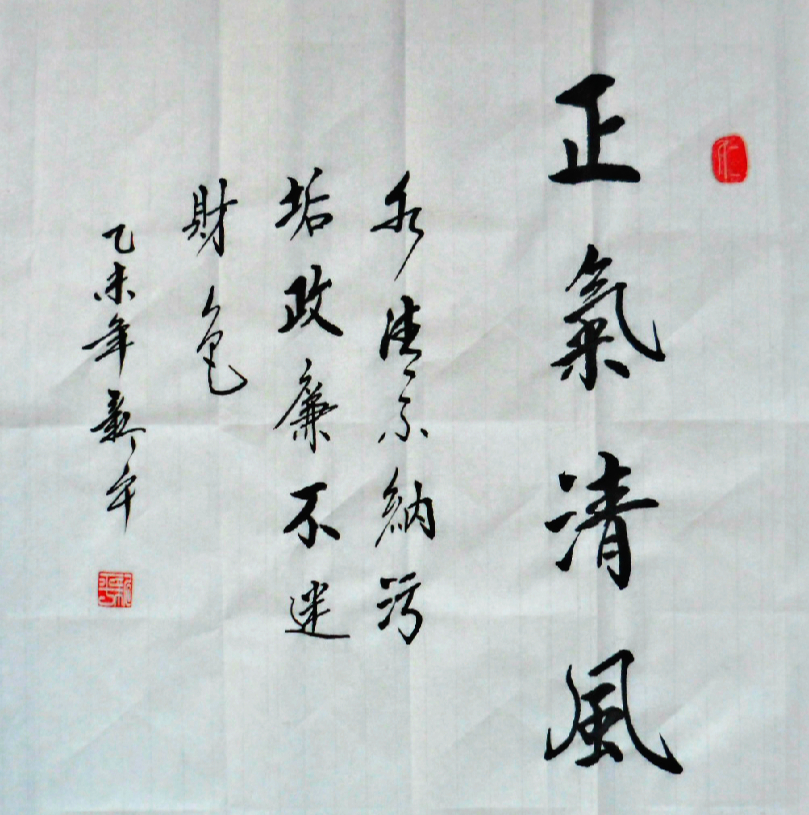 正氣清風
水清不納污
垢政廉不迷
財色
乙未年新平